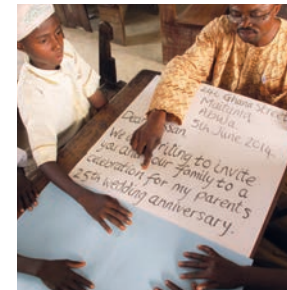 Ghana Street,
Maitama,
Abuja.
5th June 2014.
Dear
We writing to invite
you and your family to a
celebration for my parent's
25th wedding anniversary.